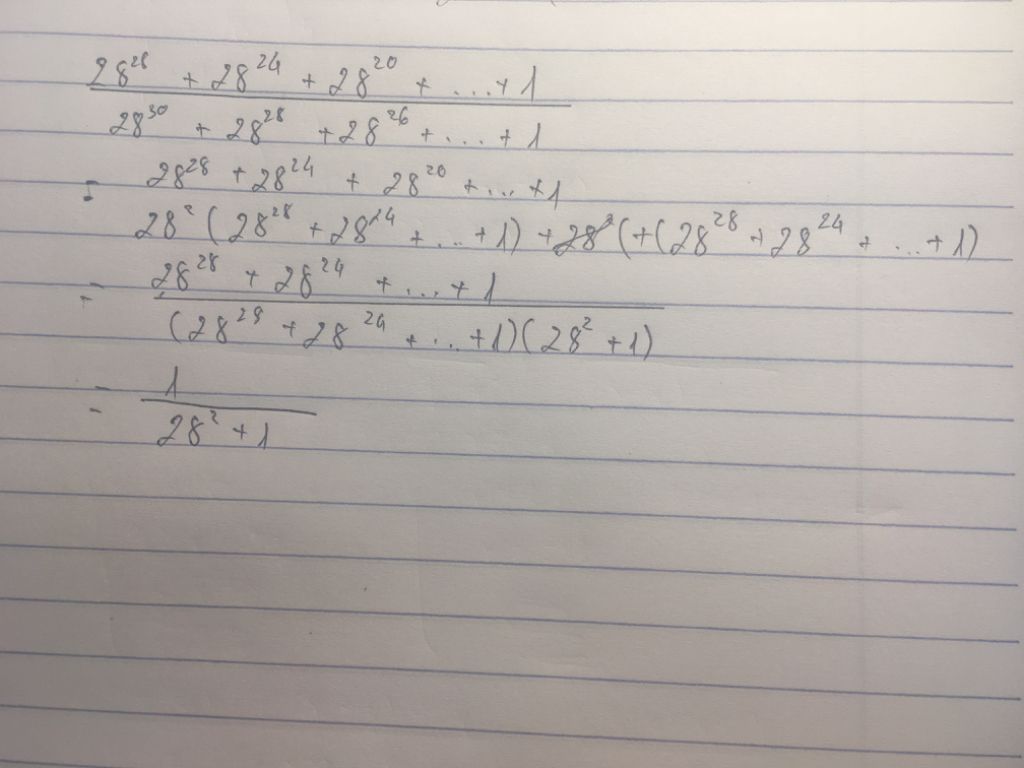 28²⁸ + 28²⁴ + 28²⁰ + ... + 1
28³⁰ + 28²⁸ + 28²⁶ + ... + 1
= 28²⁸ + 28²⁴ + 28²⁰ + ... + 1
28² (28²⁸ + 28²⁴ + ... + 1) + (28²⁸ + 28²⁴ + ... + 1)
= 28²⁸ + 28²⁴ + ... + 1
(28²⁸ + 28²⁴ + ... + 1)(28² + 1)
= 1
28² + 1